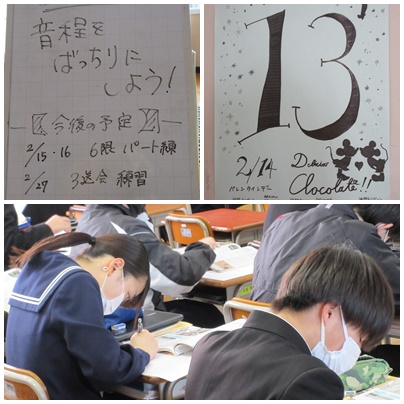 音程を
ばっちりに
しよう!
今後の予定
2/15・16 6限 パート練
2/27 3送会 練習
13
2/14
バレンタインデー
Delicious
Chocolate!!